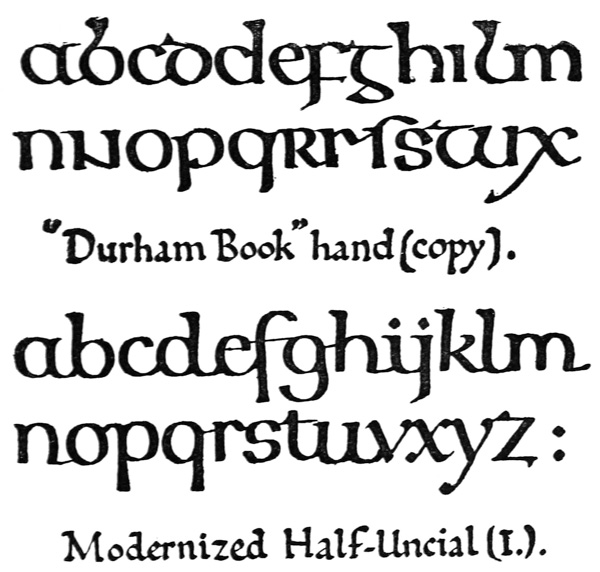 abcꝺdefᵹhılm
nɴopqʀrſstux
"Durham Book" hand (copy).
abcdefghijklm
nopqrstuvxyz:
Modernized Half-Uncial (I.).